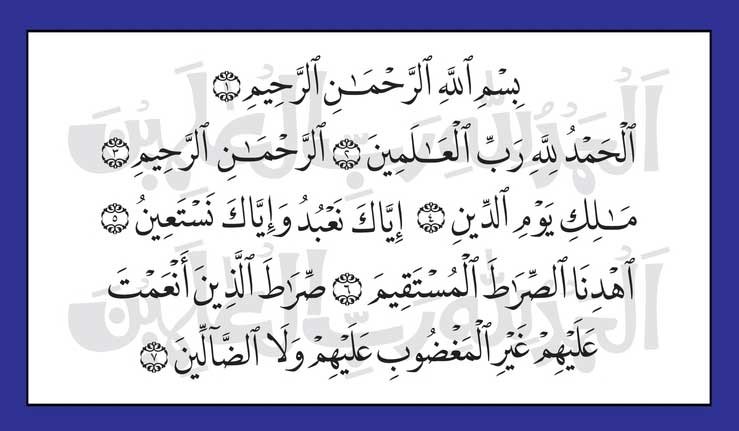 بِسْمِ ٱللَّهِ ٱلرَّحْمَـٰنِ ٱلرَّحِيمِ ١
ٱلْحَمْدُ لِلَّهِ رَبِّ ٱلْعَـٰلَمِينَ ٢ ٱلرَّحْمَـٰنِ ٱلرَّحِيمِ ٣
مَـٰلِكِ يَوْمِ ٱلدِّينِ ٤ إِيَّاكَ نَعْبُدُ وَإِيَّاكَ نَسْتَعِينُ ٥
ٱهْدِنَا ٱلصِّرَٰطَ ٱلْمُسْتَقِيمَ ٦ صِرَٰطَ ٱلَّذِينَ أَنْعَمْتَ
عَلَيْهِمْ غَيْرِ ٱلْمَغْضُوبِ عَلَيْهِمْ وَلَا ٱلضَّآلِّينَ ٧